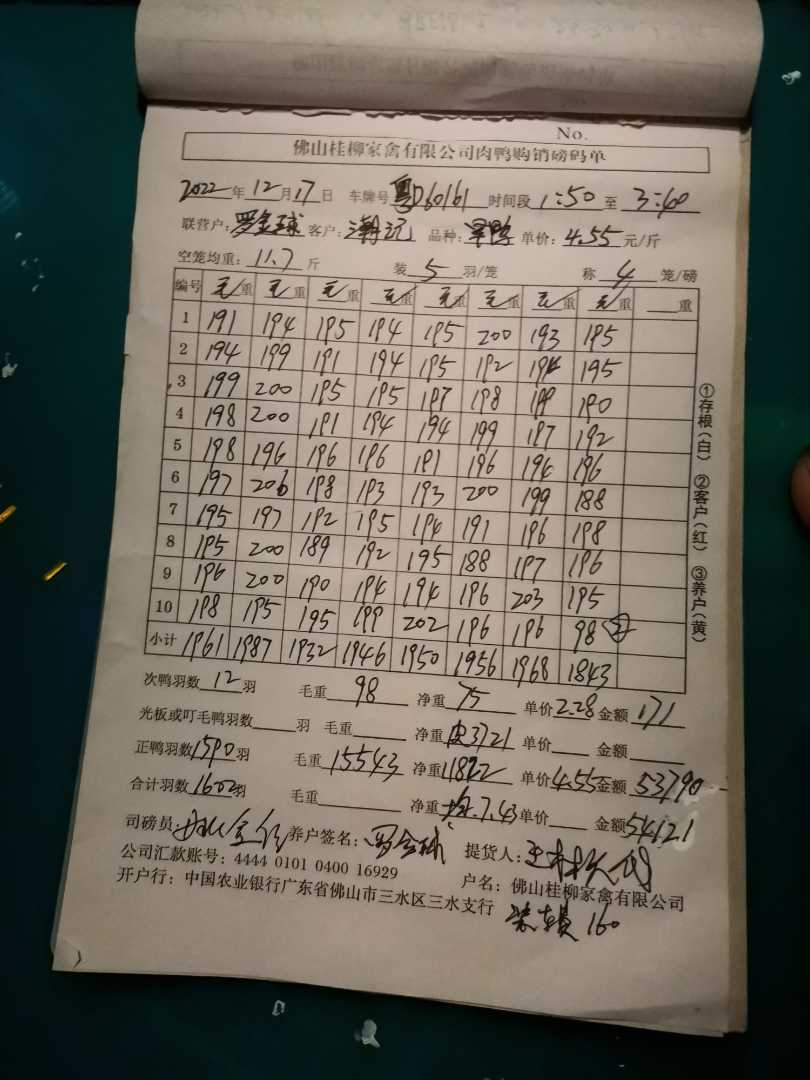 No.
佛山桂柳家禽有限公司肉鸭购销磅码单
2022年12月17日 车牌号粤D60161 时间段1:50至3:40
联营户:罗金球 客户:潮记 品种: 单价:4.55元/斤
空笼均重:11.7斤 装5羽/笼 称4笼/磅
编号 毛重 毛重 毛重 毛重 毛重 毛重 毛重 毛重 重
1 191 194 195 194 195 200 193 195
2 194 199 191 194 195 192 194 195
3 199 200 195 195 197 198 199 190
4 198 200 191 194 194 199 197 192
5 198 196 196 196 191 196 194 196
6 197 206 198 193 193 200 199 188
7 195 197 192 195 194 191 196 198
8 195 200 189 192 195 188 197 196
9 196 200 190 194 194 196 203 195
10 198 195 195 199 202 196 196 98 ②
小计 1961 1987 1932 1946 1950 1956 1968 1843
①存根(白) ②客户(红) ③养户(黄)
次鸭羽数12羽 毛重98 净重75 单价2.28 金额171
光板或叮毛鸭羽数 羽 毛重 净重皮3721 单价 金额
正鸭羽数1590羽 毛重15543 净重11822 单价4.55 金额53790
合计羽数1602羽 毛重 净重均.7.43 单价 金额54121
司磅员: 养户签名:罗金球 提货人:
公司汇款账号:4444 0101 0400 16929 户名:佛山桂柳家禽有限公司
开户行:中国农业银行广东省佛山市三水区三水支行
160